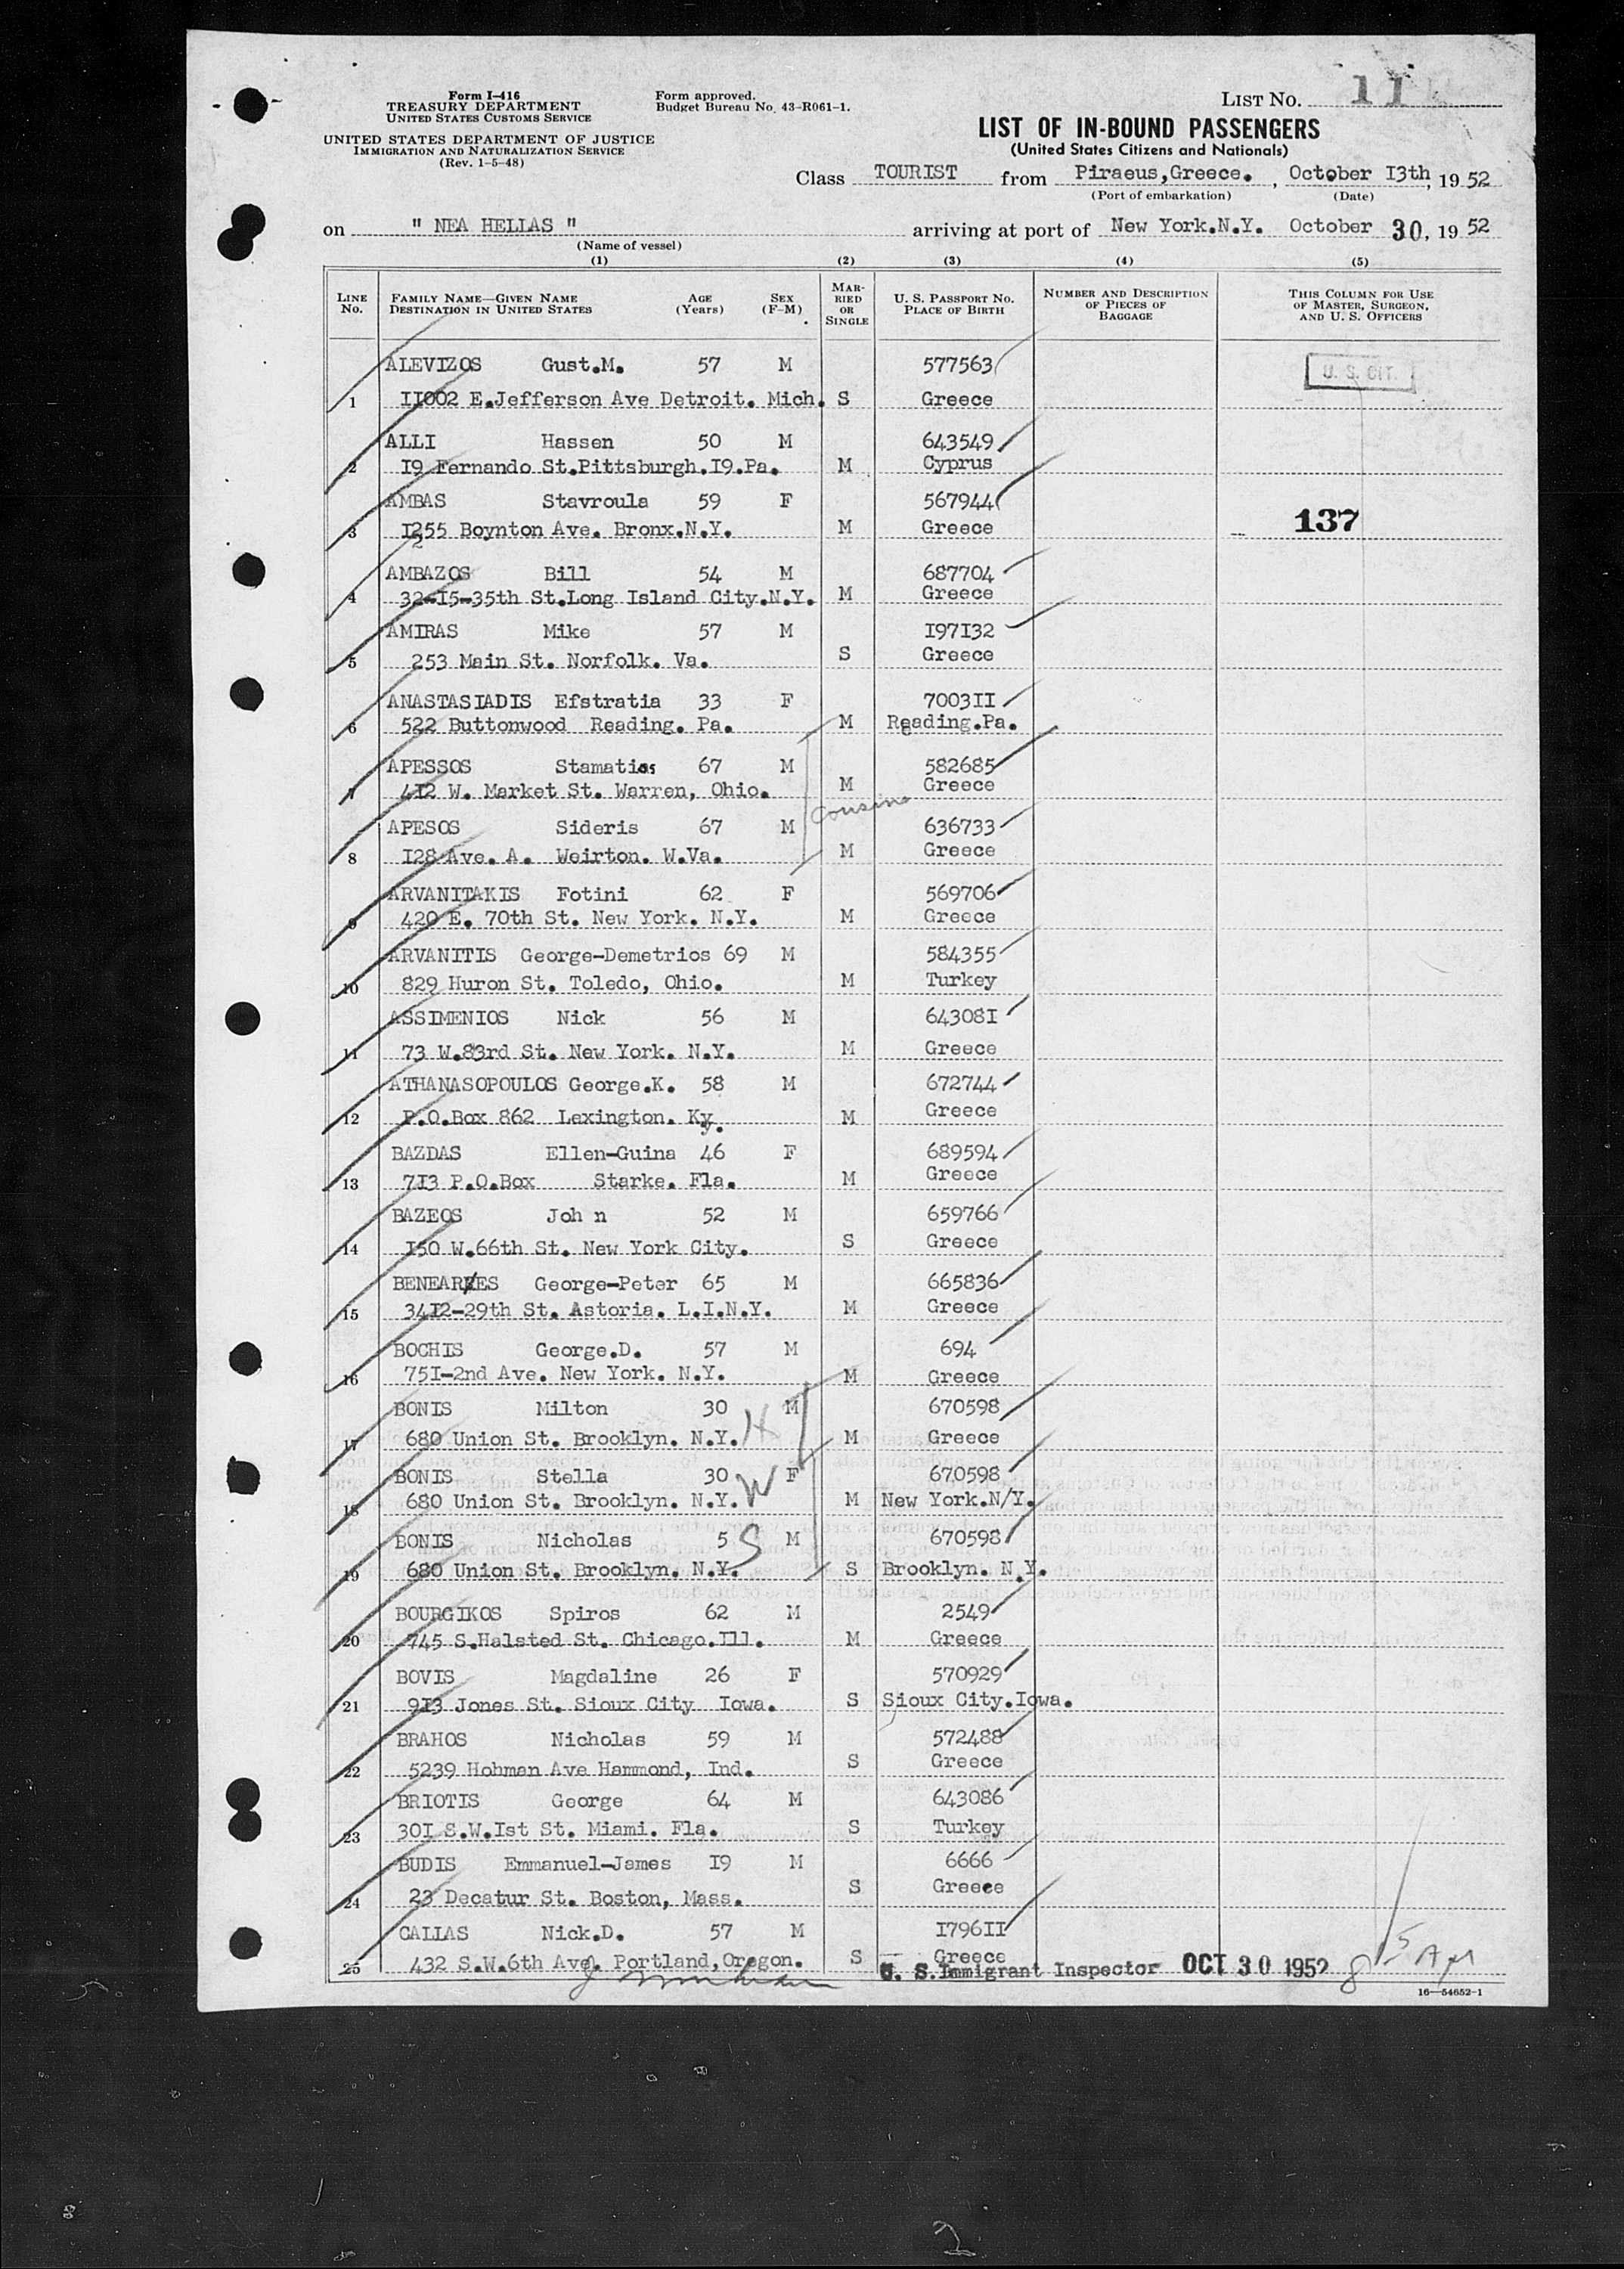 Form I-416
TREASURY DEPARTMENT
UNITED STATES CUSTOMS SERVICE
UNITED STATES DEPARTMENT OF JUSTICE
IMMIGRATION AND NATURALIZATION SERVICE
(Rev. 1-5-48)
Form approved.
Budget Bureau No. 43-R061-1.
LIST NO. 11
LIST OF IN-BOUND PASSENGERS
(United States Citizens and Nationals)
Class TOURIST from Piraeus,Greece. , October I3th, 19 52
(Port of embarkation) (Date)
on " NEA HELLAS " arriving at port of New York.N.Y. October 30, 19 52
(Name of vessel)
(1) (2) (3) (4) (5)
LINE NO. FAMILY NAME—GIVEN NAME DESTINATION IN UNITED STATES AGE (Years) SEX (F-M) MARRIED OR SINGLE U. S. PASSPORT NO. PLACE OF BIRTH NUMBER AND DESCRIPTION OF PIECES OF BAGGAGE THIS COLUMN FOR USE OF MASTER, SURGEON, AND U. S. OFFICERS
ALEVIZOS Gust.M. 57 M 577563 U. S. CIT.
1 II002 E.Jefferson Ave Detroit. Mich. S Greece
ALLI Hassen 50 M 643549
2 I9 Fernando St.Pittsburgh.I9.Pa. M Cyprus
AMBAS Stavroula 59 F 567944
3 I255 Boynton Ave. Bronx.N.Y. M Greece 137
2
AMBAZOS Bill 54 M 687704
4 32-I5-35th St.Long Island City.N.Y. M Greece
AMIRAS Mike 57 M I97I32
5 253 Main St. Norfolk. Va. S Greece
ANASTASIADIS Efstratia 33 F 7003II
6 522 Buttonwood Reading. Pa. M Reading.Pa.
APESSOS Stamatios 67 M 582685
7 4I2 W. Market St. Warren, Ohio. M Greece
cousins
APESOS Sideris 67 M 636733
8 I28 Ave. A. Weirton. W.Va. M Greece
ARVANITAKIS Fotini 62 F 569706
9 420 E. 70th St. New York. N.Y. M Greece
ARVANITIS George-Demetrios 69 M 584355
10 829 Huron St. Toledo, Ohio. M Turkey
ASSIMENIOS Nick 56 M 64308I
11 73 W.83rd St. New York. N.Y. M Greece
ATHANASOPOULOS George.K. 58 M 672744
12 P.O.Box 862 Lexington. Ky. M Greece
BAZDAS Ellen-Guina 46 F 689594
13 7I3 P.O.Box Starke. Fla. M Greece
BAZEOS Joh n 52 M 659766
14 I50 W.66th St. New York City. S Greece
BENEARKES George-Peter 65 M 665836
15 34I2-29th St. Astoria. L.I.N.Y. M Greece
BOCHIS George.D. 57 M 694
16 75I-2nd Ave. New York. N.Y. M Greece
BONIS Milton 30 H M 670598
17 680 Union St. Brooklyn. N.Y. M Greece
BONIS Stella 30 W F 670598
18 680 Union St. Brooklyn. N.Y. M New York.N/Y.
BONIS Nicholas 5 S M 670598
19 680 Union St. Brooklyn. N.Y. S Brooklyn. N.Y.
BOURGIKOS Spiros 62 M 2549
20 745 S.Halsted St. Chicago.Ill. M Greece
BOVIS Magdaline 26 F 570929
21 9I3 Jones St. Sioux City Iowa. S Sioux City.Iowa.
BRAHOS Nicholas 59 M 572488
22 5239 Hohman Ave Hammond, Ind. S Greece
BRIOTIS George 64 M 643086
23 30I S.W.Ist St. Miami. Fla. S Turkey
BUDIS Emmanuel-James I9 M 6666
24 23 Decatur St. Boston, Mass. S Greece
CALLAS Nick.D. 57 M I796II
25 432 S.W.6th Ave. Portland,Oregon. S Greece
U. S. Immigrant Inspector OCT 30 1952
16—54652-1
2